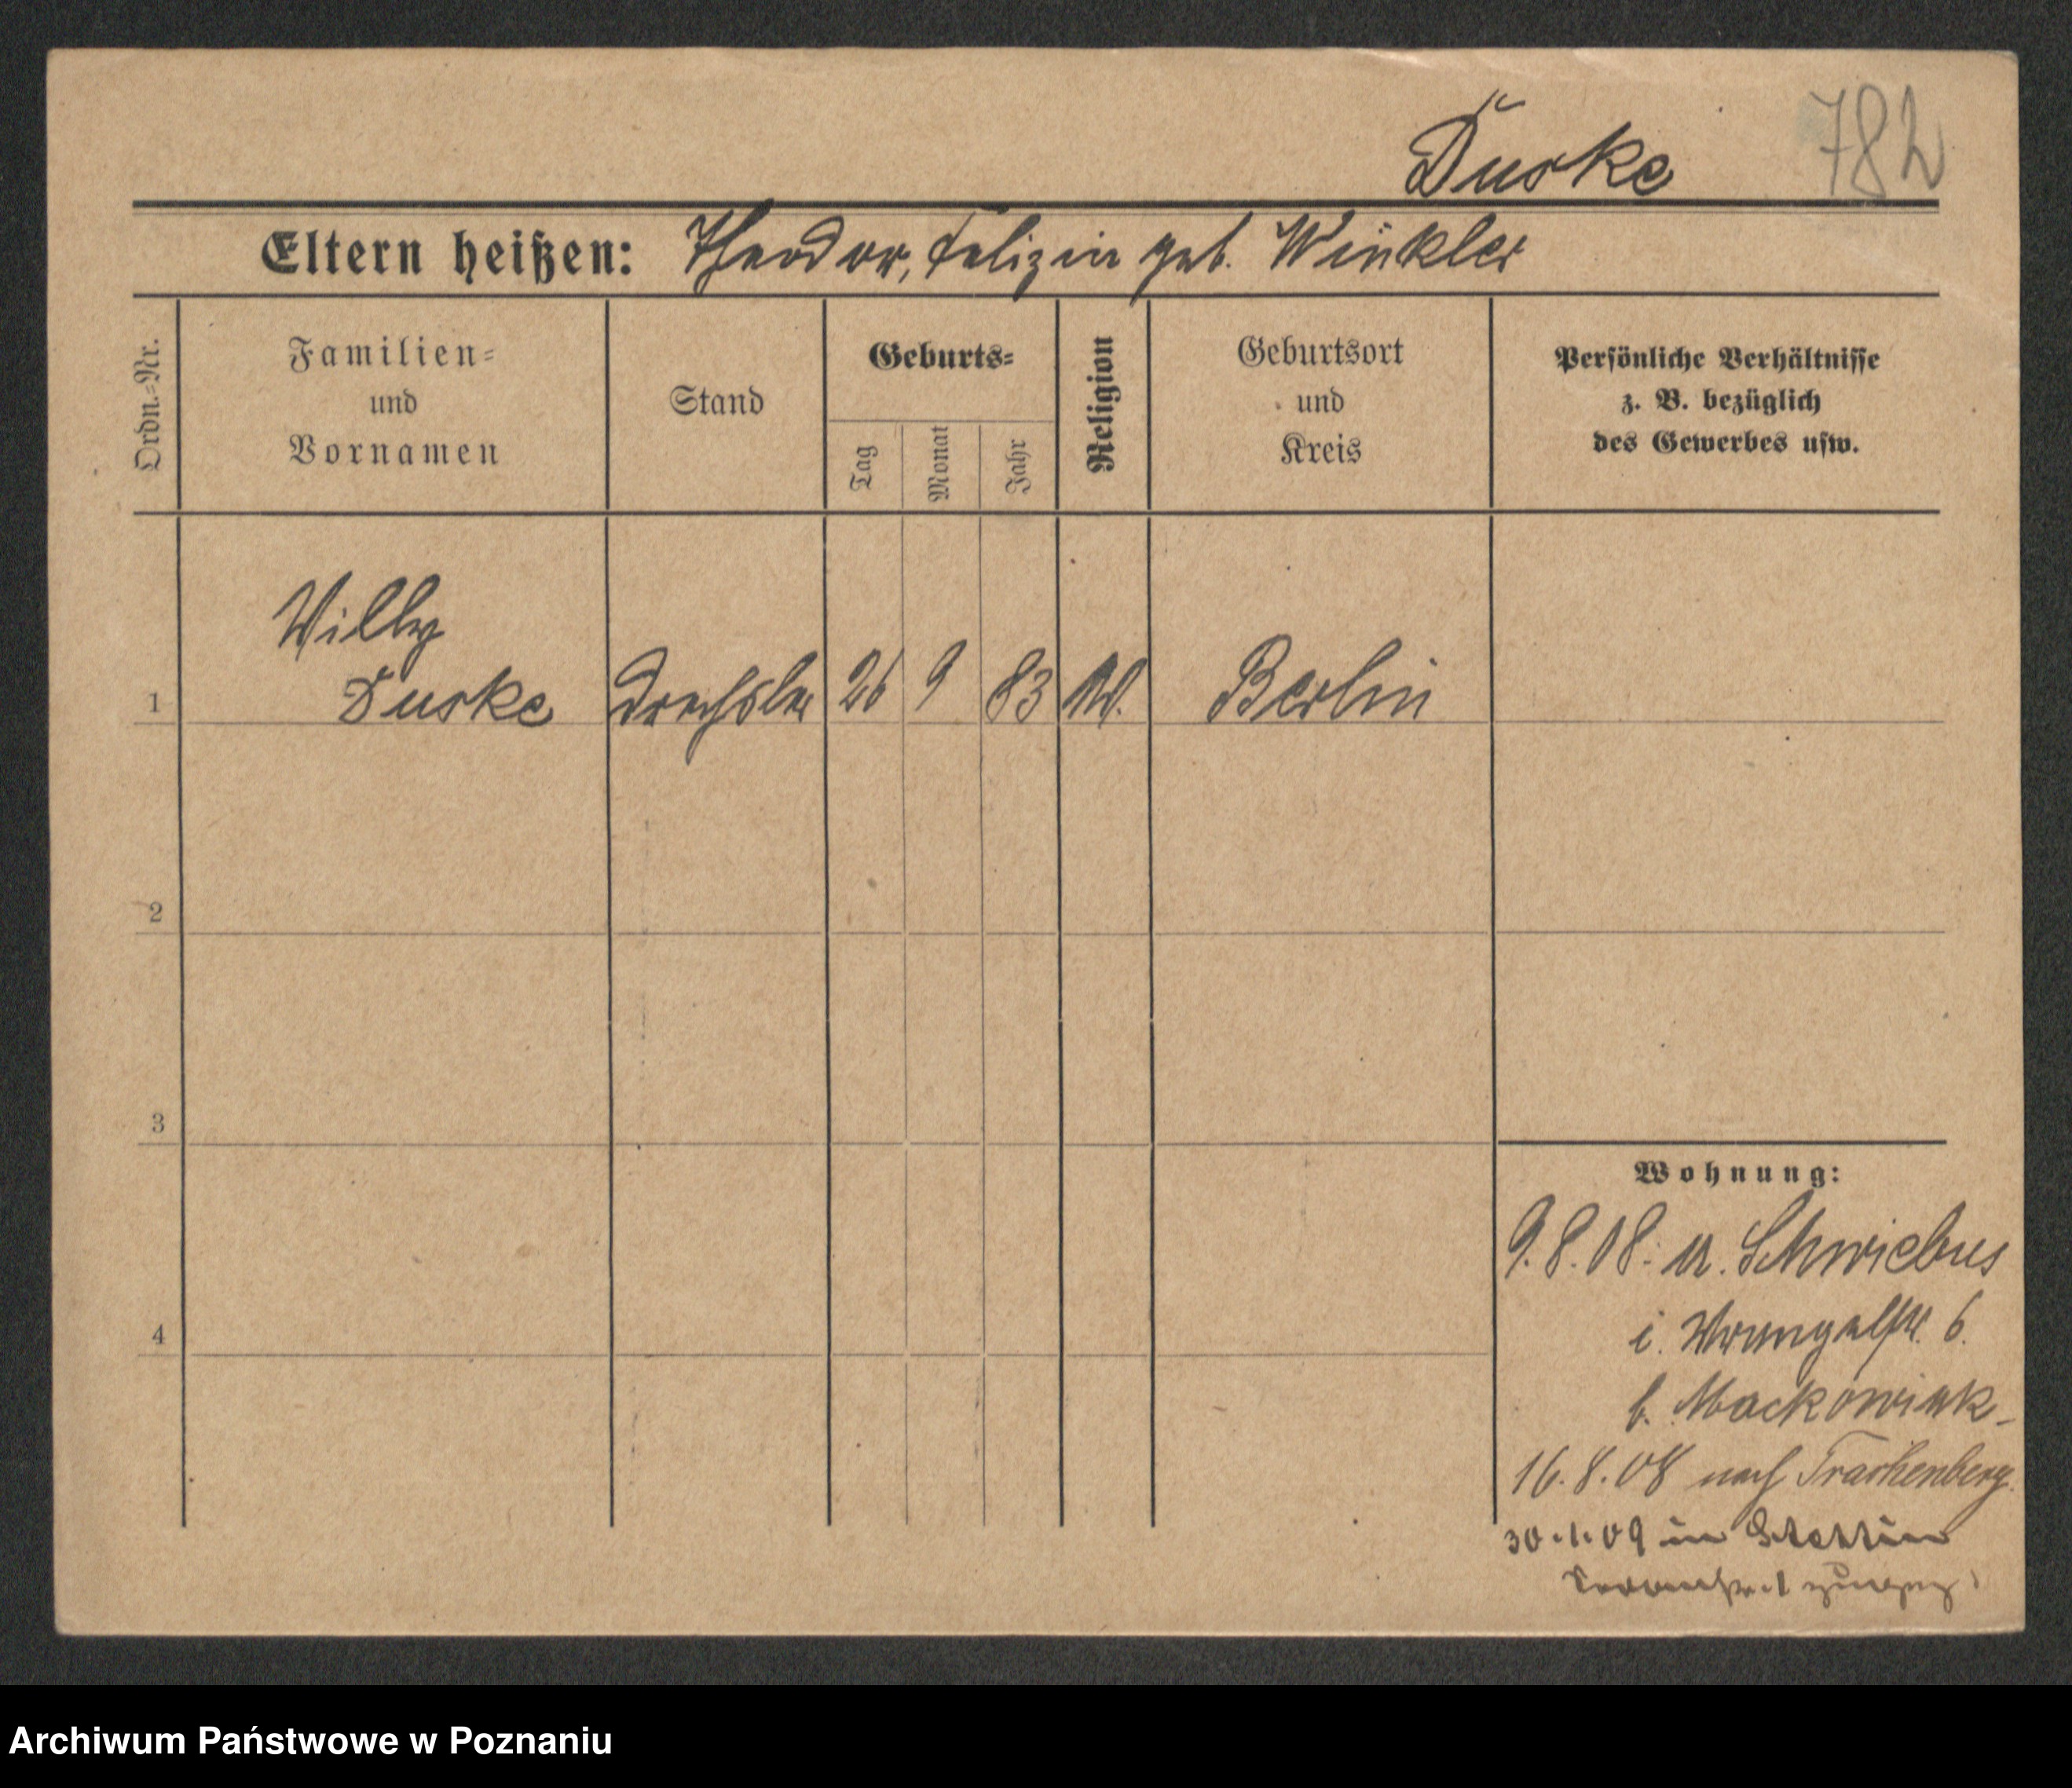 Duske 782
Eltern heißen: Theodor, Felizia geb. Winkler
Ordn.-Nr.
Familien-
und
Vornamen
Stand
Geburts-
Tag
Monat
Jahr
Religion
Geburtsort
und
Kreis
Persönliche Verhältnisse
z. B. bezüglich
des Gewerbes usw.
Willy
1 Duske Drechsler 26 9 83 Berlin
2
3
4
Wohnung:
9.8.08. a. Schwiebus
i. Wrangelstr. 6.
b. Mackowiak
16.8.08 nach Trachenberg.
30.1.09 in Stettin